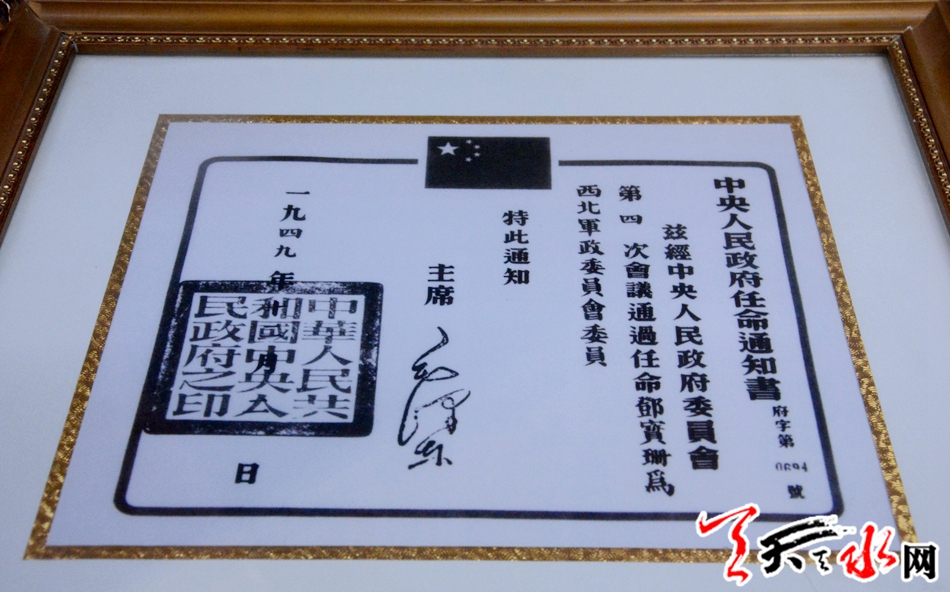 中央人民政府任命通知書
府字第 0694 號
茲經中央人民政府委員會
第四次會議通過任命鄧寶珊為
西北軍政委員會委員
特此通知
主席 毛澤東
一九四九年 月 日
中華人民共
和國中央人
民政府之印
天天天水网